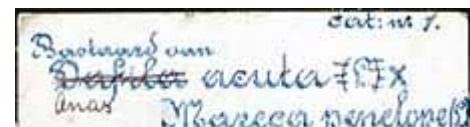 Cat: nr
Bastaard van
Dafila acuta
anas
Mareca penelope